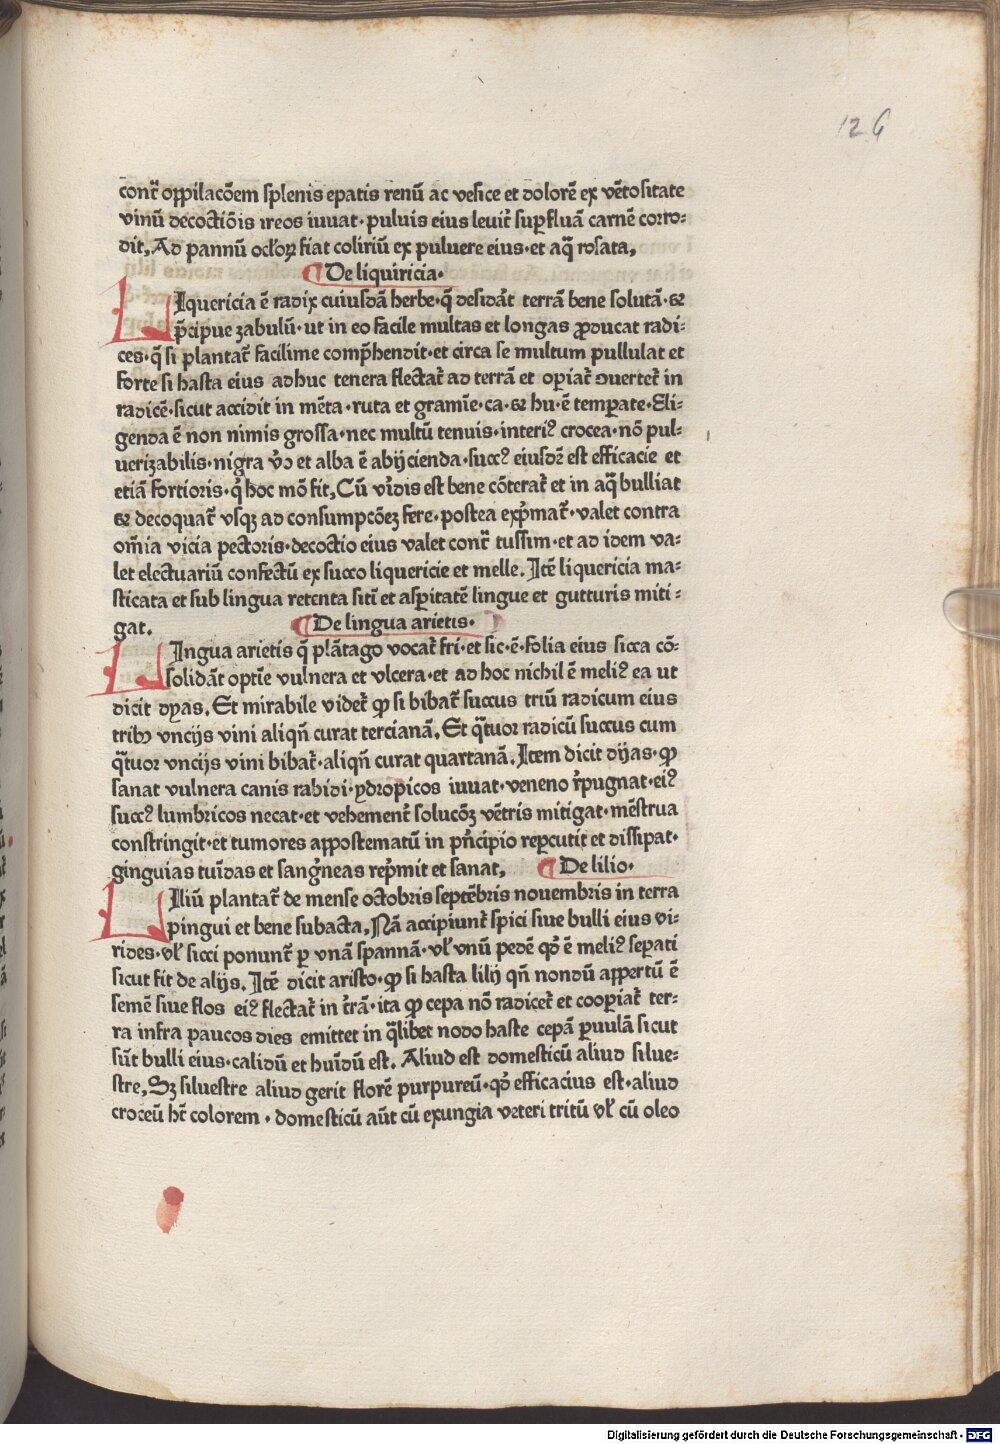 126
contr̄ oppilacōem splenis epatis renū ac vesice et dolorē ex vētositate
vinū decoctiōis ireos iuuat · puluis eius leuit̄ suꝑfluā carnē corro⸗
dit, Ad pannū oclōꝝ fiat coliriū ex puluere eius · et aq̄ rosata,
¶ De liquiricia ·
LIquericia ē radix cuiusdā herbe · q̄ desidāt terrā bene solutā · ⁊
p̄cipue zabulū · ut in eo facile multas et longas ꝓducat radi⸗
ces · q̄ si plantat̄ facilime comp̄hendit · et circa se multum pullulat et
forte si hasta eius adhuc tenera flectat̄ ad terrā et opiat̄ ↄuertet̄ in
radicē · sicut accidit in mēta · ruta et gramīe · ca · ⁊ hu · ē tempate · Eli⸗
genda ē non nimis grossa · nec multū tenuis · interiꝰ crocea · nō pul⸗
uerizabilis · nigra v̄o et alba ē abijcienda · succꝰ eiusdē est efficacie et
etiā fortioris · q̄ hoc mō fit, Cū vīdis est bene cōterat̄ et in aq̄ bulliat
⁊ decoquat̄ vsqꝫ ad consumpcōeꝫ fere · postea exp̄mat̄ · valet contra
om̄ia vicia pectoris · decoctio eius valet contr̄ tussim · et ad idem va⸗
let electuariū confectū ex succo liquericie et melle. Itē liquericia ma⸗
sticata et sub lingua retenta sitī et asꝑitatē lingue et gutturis miti⸗
gat.
¶ De lingua arietis ·
LIngua arietis q̄ plātago vocat̄ fri · et sic · ē · folia eius sicca cō⸗
solidāt optīe vulnera et vlcera · et ad hoc nichil ē meliꝰ ea ut
dicit dyas. Et mirabile videt̄ ꝙ si bibat̄ succus triū radicum eius
tribꝫ vncijs vini aliqn̄ curat tercianā. Et q̄tuor radicū succus cum
q̄tuor vncijs vini bibat̄ · aliqn̄ curat quartanā. Item dicit dijas · ꝙ
sanat vulnera canis rabidi · ydropicos iuuat · veneno r̄pugnat · eiꝰ
succꝰ lumbricos necat · et vehement̄ solucōꝫ vētris mitigat · mēstrua
constringit · et tumores appostematū in pn̄cipio reꝑcutit et dissipat ·
ginguias tuīdas et sanḡneas rep̄mit et sanat,
¶ De lilio ·
LIliū plantat̄ de mense octobris septēbris nouembris in terra
pingui et bene subacta, Nā accipiunt̄ spici siue bulli eius vi⸗
rides · vl̄ sicci ponunt̄ ꝑ vnā spannā · vl̄ vnū pedē qd̄ ē meliꝰ sepati
sicut fit de alijs. Itē dicit aristo · ꝙ si hasta lilij qn̄ nondū appertū ē
semē siue flos eiꝰ flectat̄ in t̄rā · ita ꝙ cepa nō radicet̄ et coopiat̄ ter⸗
ra infra paucos dies emittet in q̄libet nodo haste cepā ꝑuulā sicut
sūt bulli eius · calidū et huīdū est. Aliud est domesticū aliud silue⸗
stre, Sꝫ siluestre aliud gerit florē purpureū · qd̄ efficacius est · aliud
croceū hr̄ colorem · domesticū aūt cū exungia veteri tritū vl̄ cū oleo
Digitalisierung gefördert durch die Deutsche Forschungsgemeinschaft · DFG